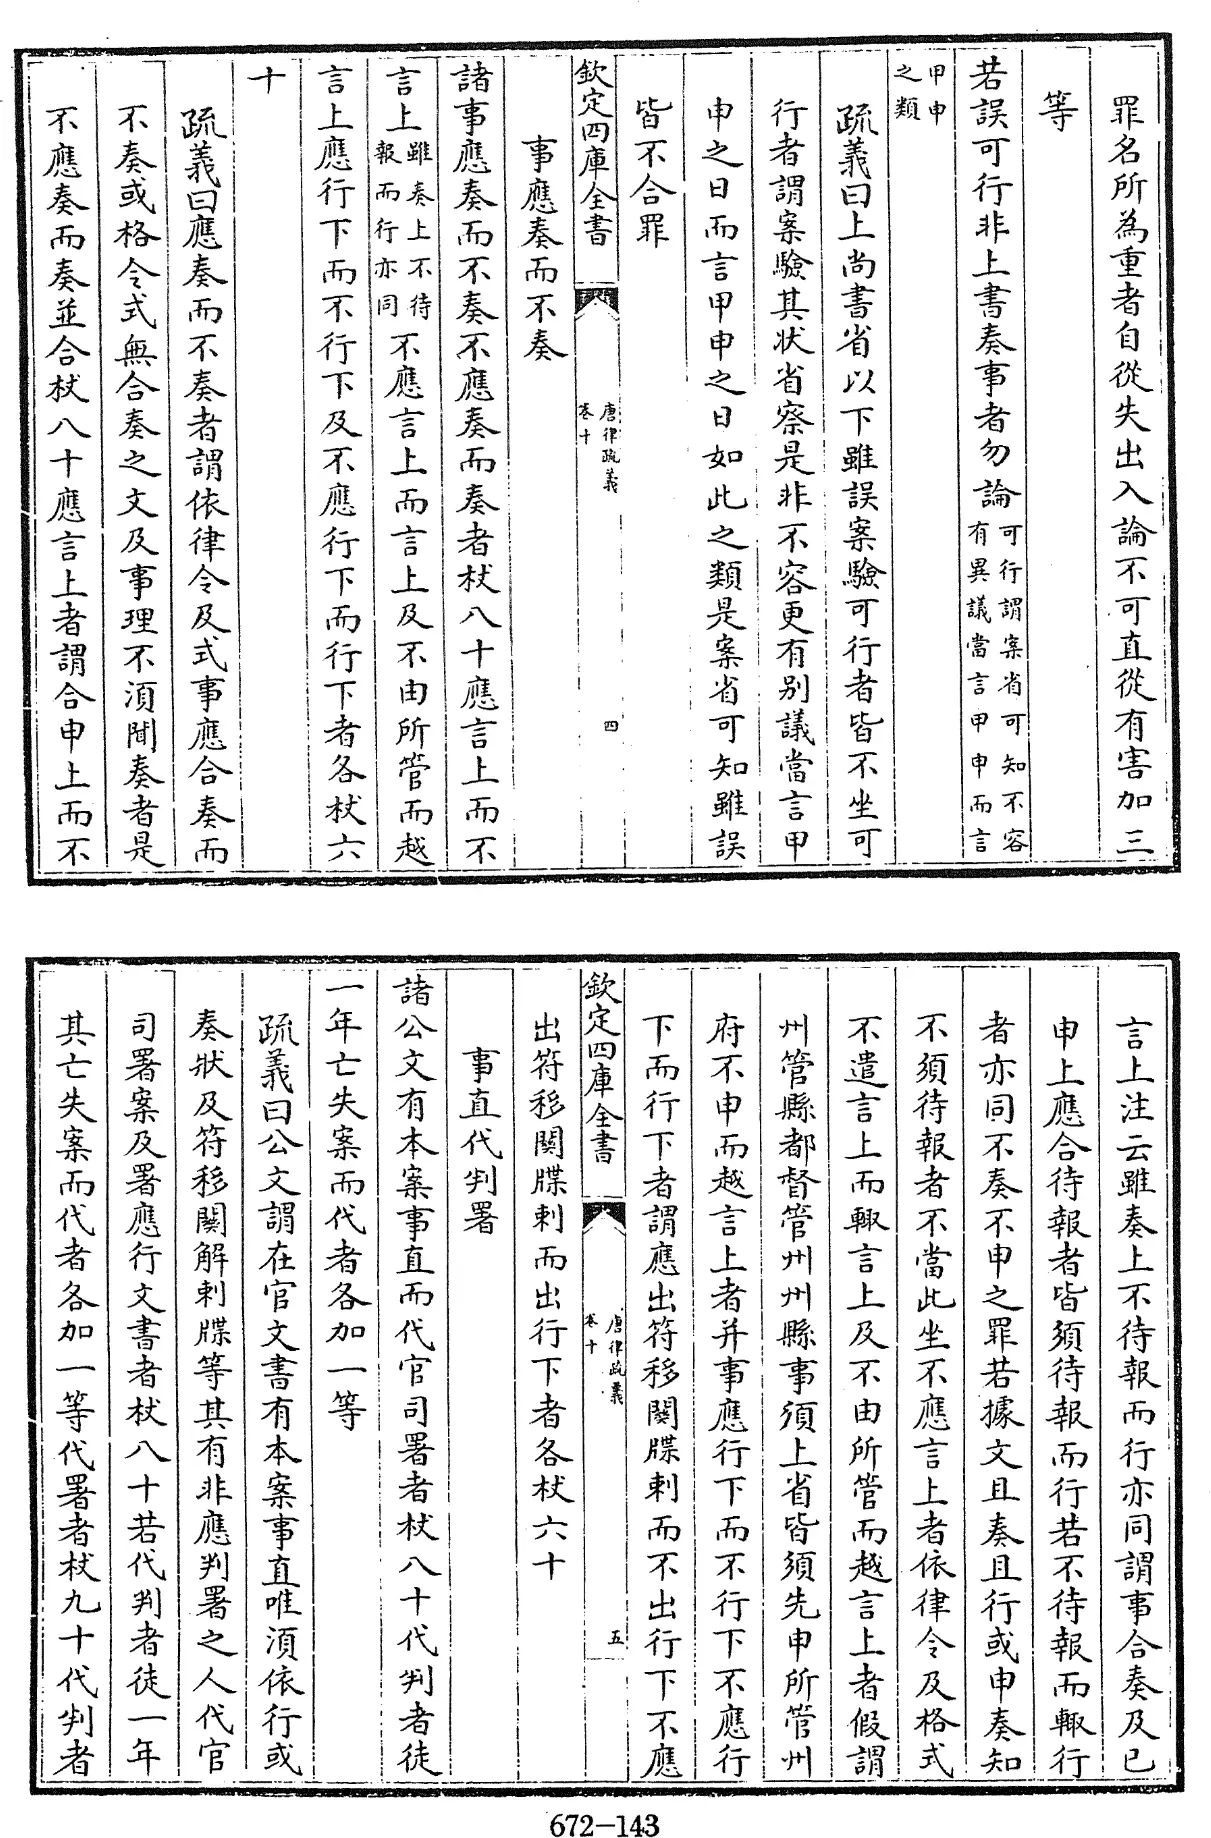 罪名所為重者自從失出入論不可直從有害加三
等
若誤可行非上書奏事者勿論可行謂案省可知不容有異議當言甲申而言
甲申之類
疏義曰上尚書省以下雖誤案驗可行者皆不坐可
行者謂案驗其狀省察是非不容更有別議當言甲
申之日而言甲申之日如此之類是案省可知雖誤
皆不合罪
欽定四庫全書
唐律疏義
卷十
四
事應奏而不奏
諸事應奏而不奏不應奏而奏者杖八十應言上而不
言上雖奏上不待報而行亦同不應言上而言上及不由所管而越
言上應行下而不行下及不應行下而行下者各杖六
十
疏義曰應奏而不奏者謂依律令及式事應合奏而
不奏或格令式無合奏之文及事理不須聞奏者是
不應奏而奏並合杖八十應言上者謂合申上而不
言上注云雖奏上不待報而行亦同謂事合奏及已
申上應合待報者皆須待報而行若不待報而輙行
者亦同不奏不申之罪若據文且奏且行或申奏知
不須待報者不當此坐不應言上者依律令及格式
不遣言上而輙言上及不由所管而越言上者假謂
州管縣都督管州州縣事須上省皆須先申所管州
府不申而越言上者并事應行下而不行下不應行
下而行下者謂應出符移關牒刺而不出行下不應
欽定四庫全書
唐律疏義
卷十
五
出符移關牒刺而出行下者各杖六十
事直代判署
諸公文有本案事直而代官司署者杖八十代判者徒
一年亡失案而代者各加一等
疏義曰公文謂在官文書有本案事直唯須依行或
奏狀及符移關解刺牒等其有非應判署之人代官
司署案及署應行文書者杖八十若代判者徒一年
其亡失案而代者各加一等代署者杖九十代判者
672-143